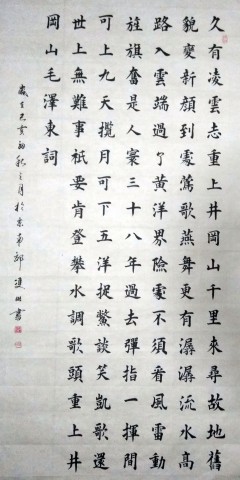 久有凌雲志重上井岡山千里來尋故地舊
貌變新顏到處鶯歌燕舞更有潺潺流水高
路入雲端過了黃洋界險處不須看風雷動
旌旗奮是人寰三十八年過去彈指一揮間
可上九天攬月可下五洋捉鱉談笑凱歌還
世上無難事祇要肯登攀水調歌頭重上井
岡山毛澤東詞
歲在己亥初秋之月於京東郭書